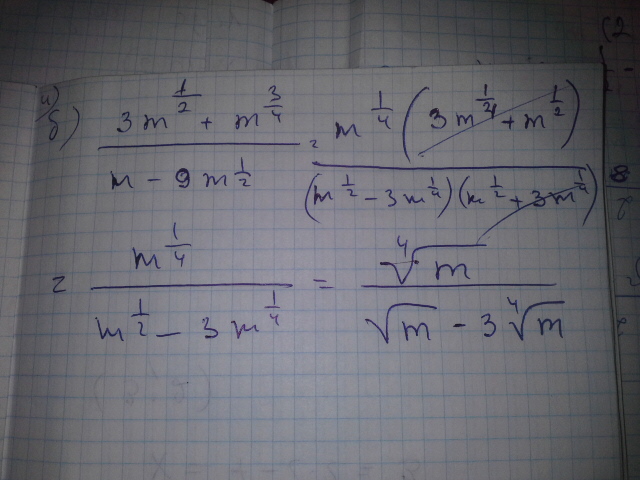 а)
б) \frac{3m^{\frac{1}{2}} + m^{\frac{3}{4}}}{m - 9m^{\frac{1}{2}}} = \frac{m^{\frac{1}{4}}(3m^{\frac{1}{4}} + m^{\frac{1}{2}})}{(m^{\frac{1}{2}} - 3m^{\frac{1}{4}})(m^{\frac{1}{2}} + 3m^{\frac{1}{4}})}
= \frac{m^{\frac{1}{4}}}{m^{\frac{1}{2}} - 3m^{\frac{1}{4}}} = \frac{\sqrt[4]{m}}{\sqrt{m} - 3\sqrt[4]{m}}